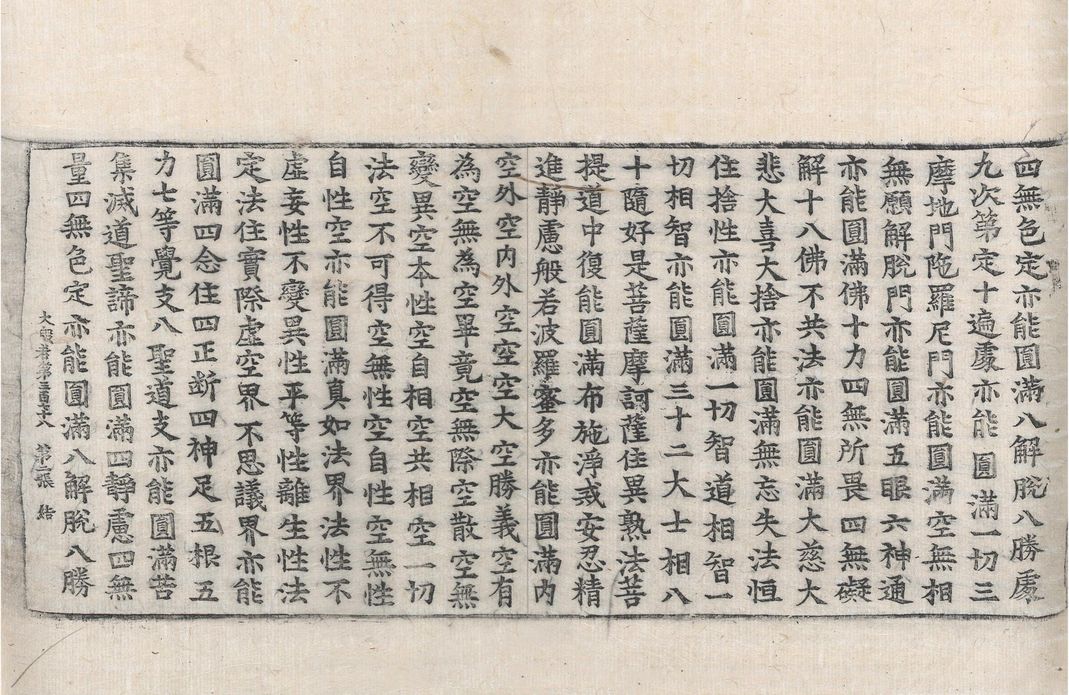 四無色定亦能圓滿八解脫八勝處
九次第定十遍處亦能圓滿一切三
摩地門陁羅尼門亦能圓滿空無相
無願解脫門亦能圓滿五眼六神通
亦能圓滿佛十力四無所畏四無礙
解十八佛不共法亦能圓滿大慈大
悲大喜大捨亦能圓滿無忘失法恒
住捨性亦能圓滿一切智道相智一
切相智亦能圓滿三十二大士相八
十隨好是菩薩摩訶薩住異熟法菩
提道中復能圓滿布施淨戒安忍精
進靜慮般若波羅蜜多亦能圓滿內
空外空內外空空空大空勝義空有
為空無為空畢竟空無際空散空無
變異空本性空自相空共相空一切
法空不可得空無性空自性空無性
自性空亦能圓滿真如法界法性不
虛妄性不變異性平等性離生性法
定法住實際虛空界不思議界亦能
圓滿四念住四正断四神足五根五
力七等覺支八聖道支亦能圓滿苦
集滅道聖諦亦能圓滿四靜慮四無
量四無色定亦能圓滿八解脫八勝
大般若第三百 六 第二張 結